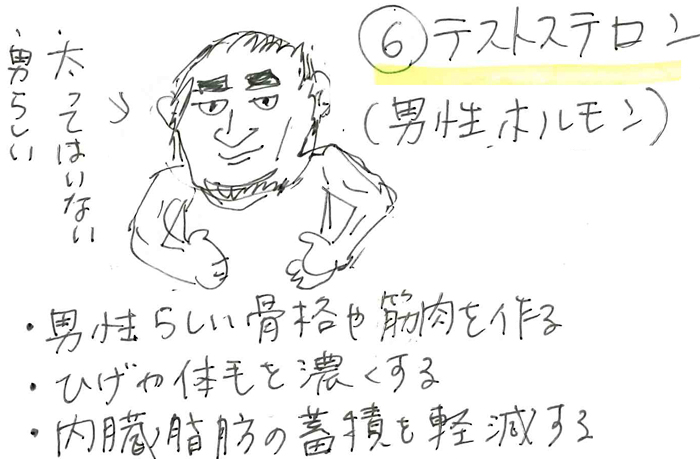 ⑥テストステロン
(男性ホルモン)
・太ってはいない
・男らしい
・男性らしい骨格や筋肉を作る
・ひげや体毛を濃くする
・内臓脂肪の蓄積を軽減する